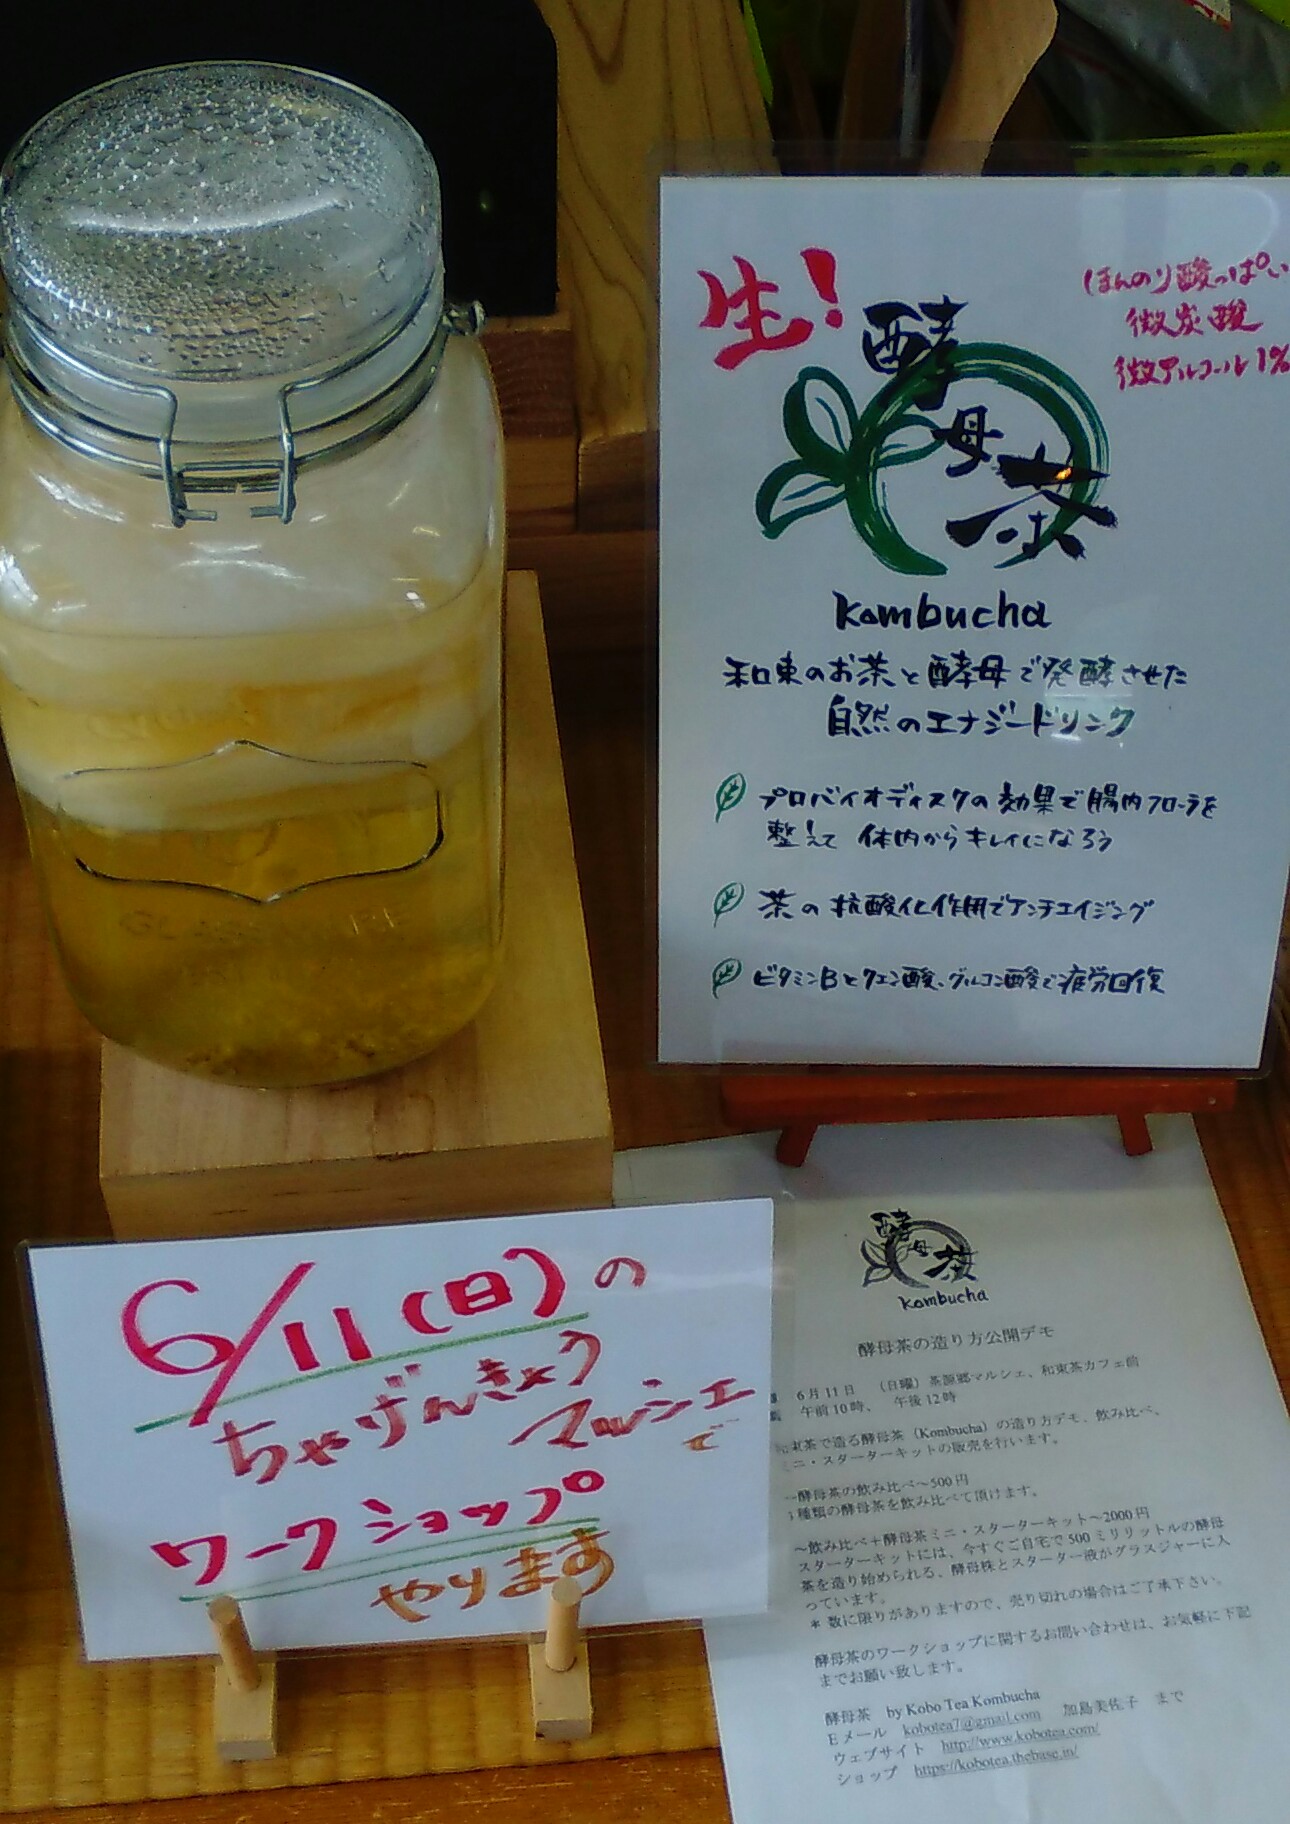 生!
酵母茶
ほんのり酸っぱい
微炭酸
微アルコール1%
Kombucha
和束のお茶と酵母で発酵させた
自然のエナジードリンク
プロバイオディスクの効果で腸内フローラを
整えて 体内からキレイになろう
茶の抗酸化作用でアンチエイジング
ビタミンBとクエン酸、グルコン酸で疲労回復
6/11(日)の
ちゃげんきょう
マルシェで
ワークショップ
やります
酵母茶
Kombucha
酵母茶の造り方公開デモ
6月11日 (日曜) 茶源郷マルシェ、和束茶カフェ前
午前10時、 午後12時
束茶で造る酵母茶 (Kombucha) の造り方デモ、飲み比べ、
ミニ・スターターキットの販売を行います。
酵母茶の飲み比べ~500円
種類の酵母茶を飲み比べて頂けます。
~飲み比べ+酵母茶ミニ・スターターキット~2000円
スターターキットには、今すぐご自宅で500ミリリットルの酵母
茶を造り始められる、酵母株とスターター液がグラスジャーに入
っています。
* 数に限りがありますので、売り切れの場合はご了承下さい。
酵母茶のワークショップに関するお問い合わせは、お気軽に下記
までお願い致します。
酵母茶 by Kobo Tea Kombucha
Eメール kobotea7@gmail.com 加島美佐子 まで
ウェブサイト http://www.kobotea.com/
ショップ https://kobotea.thebase.in/